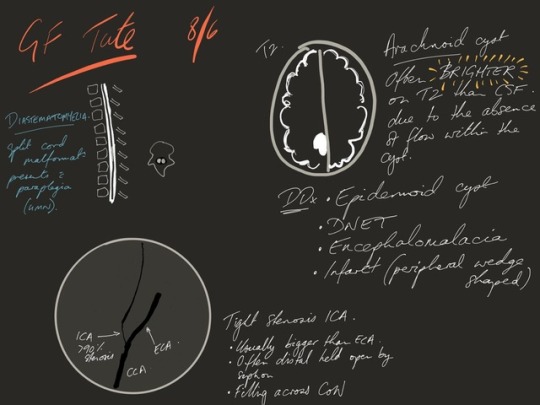 GF Tute 8/6
DIASTEMATOMYELIA.
Split cord
malformatn
presents c̄
paraplegia
(UMN).
T2.
Arachnoid cyst
Often BRIGHTER
on T2 than CSF.
due to the absence
of flow within the
cyst.
DDx • Epidermoid cyst
• DNET
• Encephalomalacia
• Infarct (peripheral wedge
shaped)
ICA
>90%
stenosis
ECA.
CCA
Tight stenosis ICA.
• Usually bigger than ECA.
• Often distal held open by
syphon
• Filling across CoW